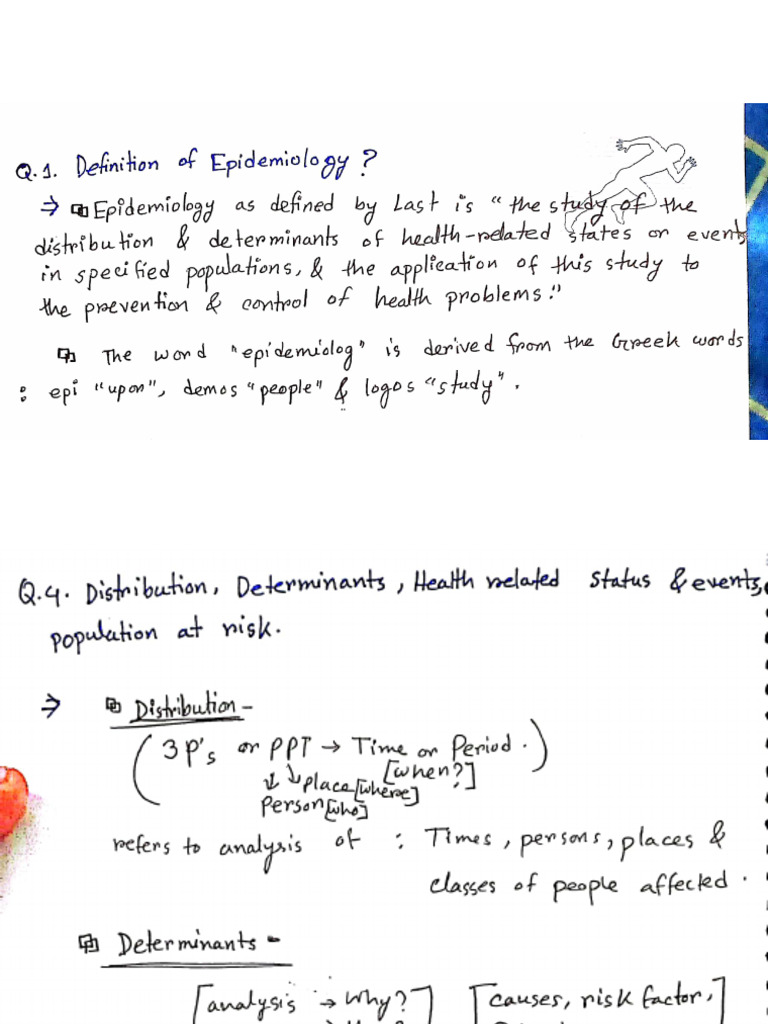 Q.1. Definition of Epidemiology?
⇒ Epidemiology as defined by Last is "the study of the
distribution & determinants of health-related states or events
in specified populations, & the application of this study to
the prevention & control of health problems."
The word "epidemiolog" is derived from the Greek words
: epi "upon", demos "people" & logos "study".
Q.4. Distribution, Determinants, Health related status & events,
population at risk.
⇒ Distribution -
(3 P's or PPT → Time or Period.)
[when?]
↓ ↳ place [where]
Person [who]
refers to analysis of : Times, persons, places &
classes of people affected.
Determinants -
[analysis → Why?] [causes, risk factor,]